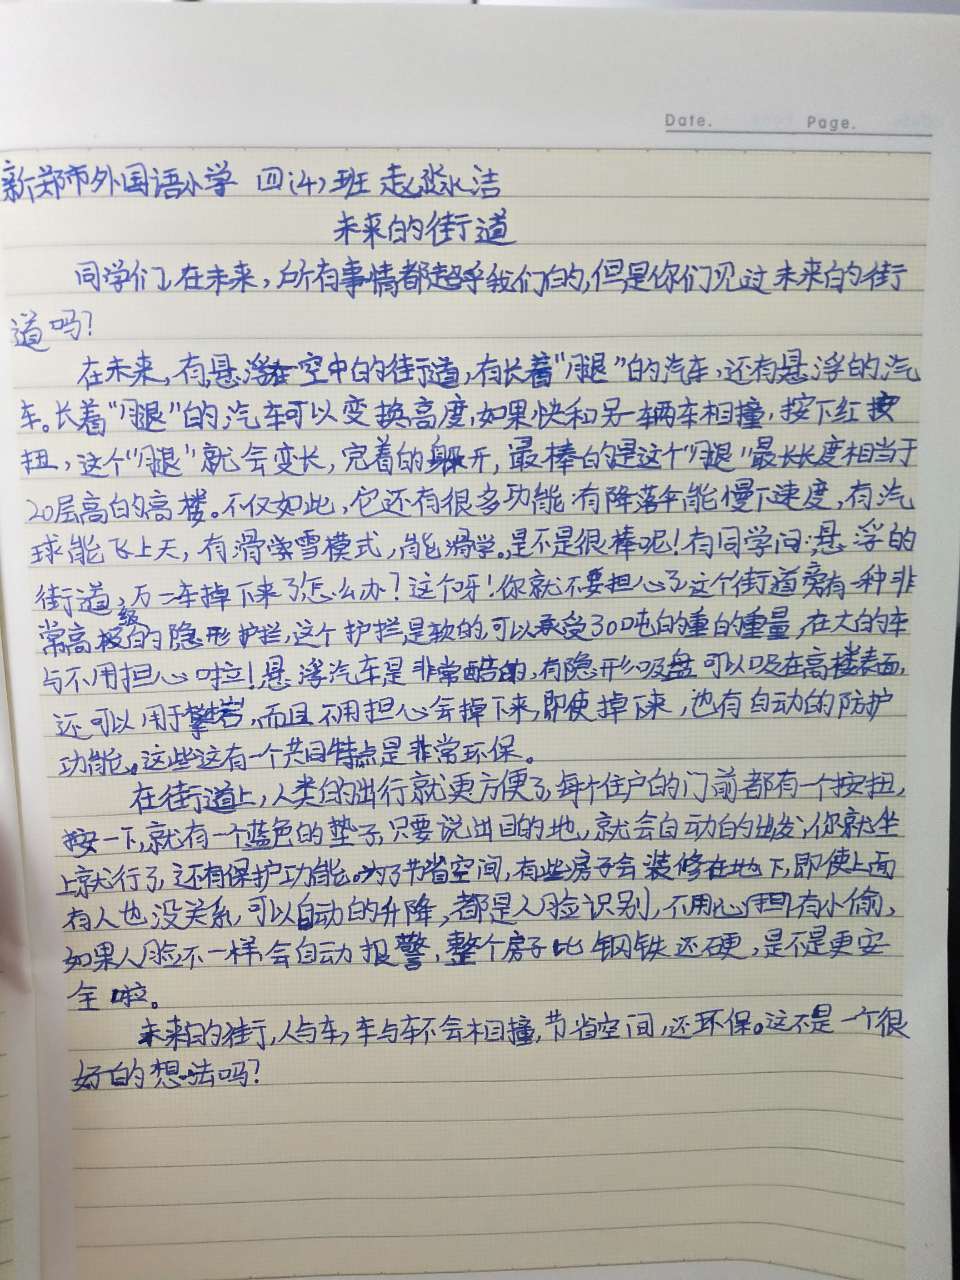 Date. Page.
新郑市外国语小学 四(4)班 赵淼洁
未来的街道
同学们,在未来,所有事情都超乎我们的,但是你们见过未来的街
道吗?
在未来,有悬浮在空中的街道,有长着“腿”的汽车,还有悬浮的汽
车。长着“腿”的汽车可以变换高度,如果快和另一辆车相撞,按下红按
扭,这个“腿”就会变长,完着的躲开,最棒的是这个“腿”最长长度相当于
20层高的高楼。不仅如此,它还有很多功能:有降落伞能慢下速度,有汽
球能飞上天,有滑雪模式,能滑学。是不是很棒呢!有同学问:悬浮的
街道,万一车掉下来了怎么办?这个呀!你就不要担心了这个街道旁有一种非
常高级的隐形护拦,这个护拦是软的,可以承受300吨的重的重量,在大的车
与不用担心啦!悬浮汽车是非常酷的,有隐形吸盘可以吸在高楼表面,
还可以用于攀岩,而且不用担心会掉下来,即使掉下来,也有自动的防护
功能。这些这有一个共同特点是非常环保。
在街道上,人类的出行就更方便了,每个住户的门前都有一个按扭,
按一下,就有一个蓝色的垫子,只要说出目的地,就会自动的出发,你就坐
上就行了,还有保护功能。为了节省空间,有些房子会装修在地下,即使上面
有人也没关系,可以自动的升降,都是人脸识别,不用心担有小偷,
如果人脸不一样,会自动报警,整个房子比钢铁还硬,是不是更安
全啦。
未来的街,人与车,车与车不会相撞,节省空间,还环保。这不是一个很
好的想法吗?